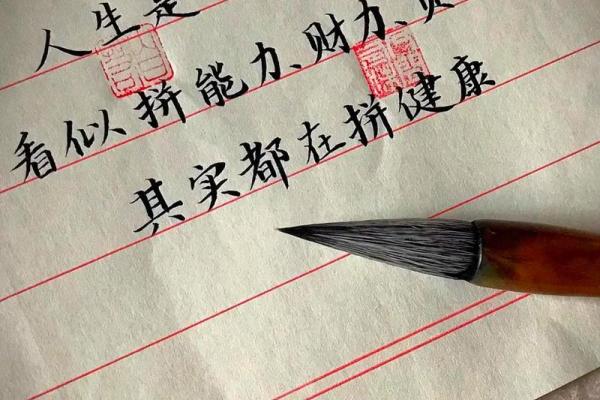 人生是
看似拼能力、财力、
其实都在拼健康